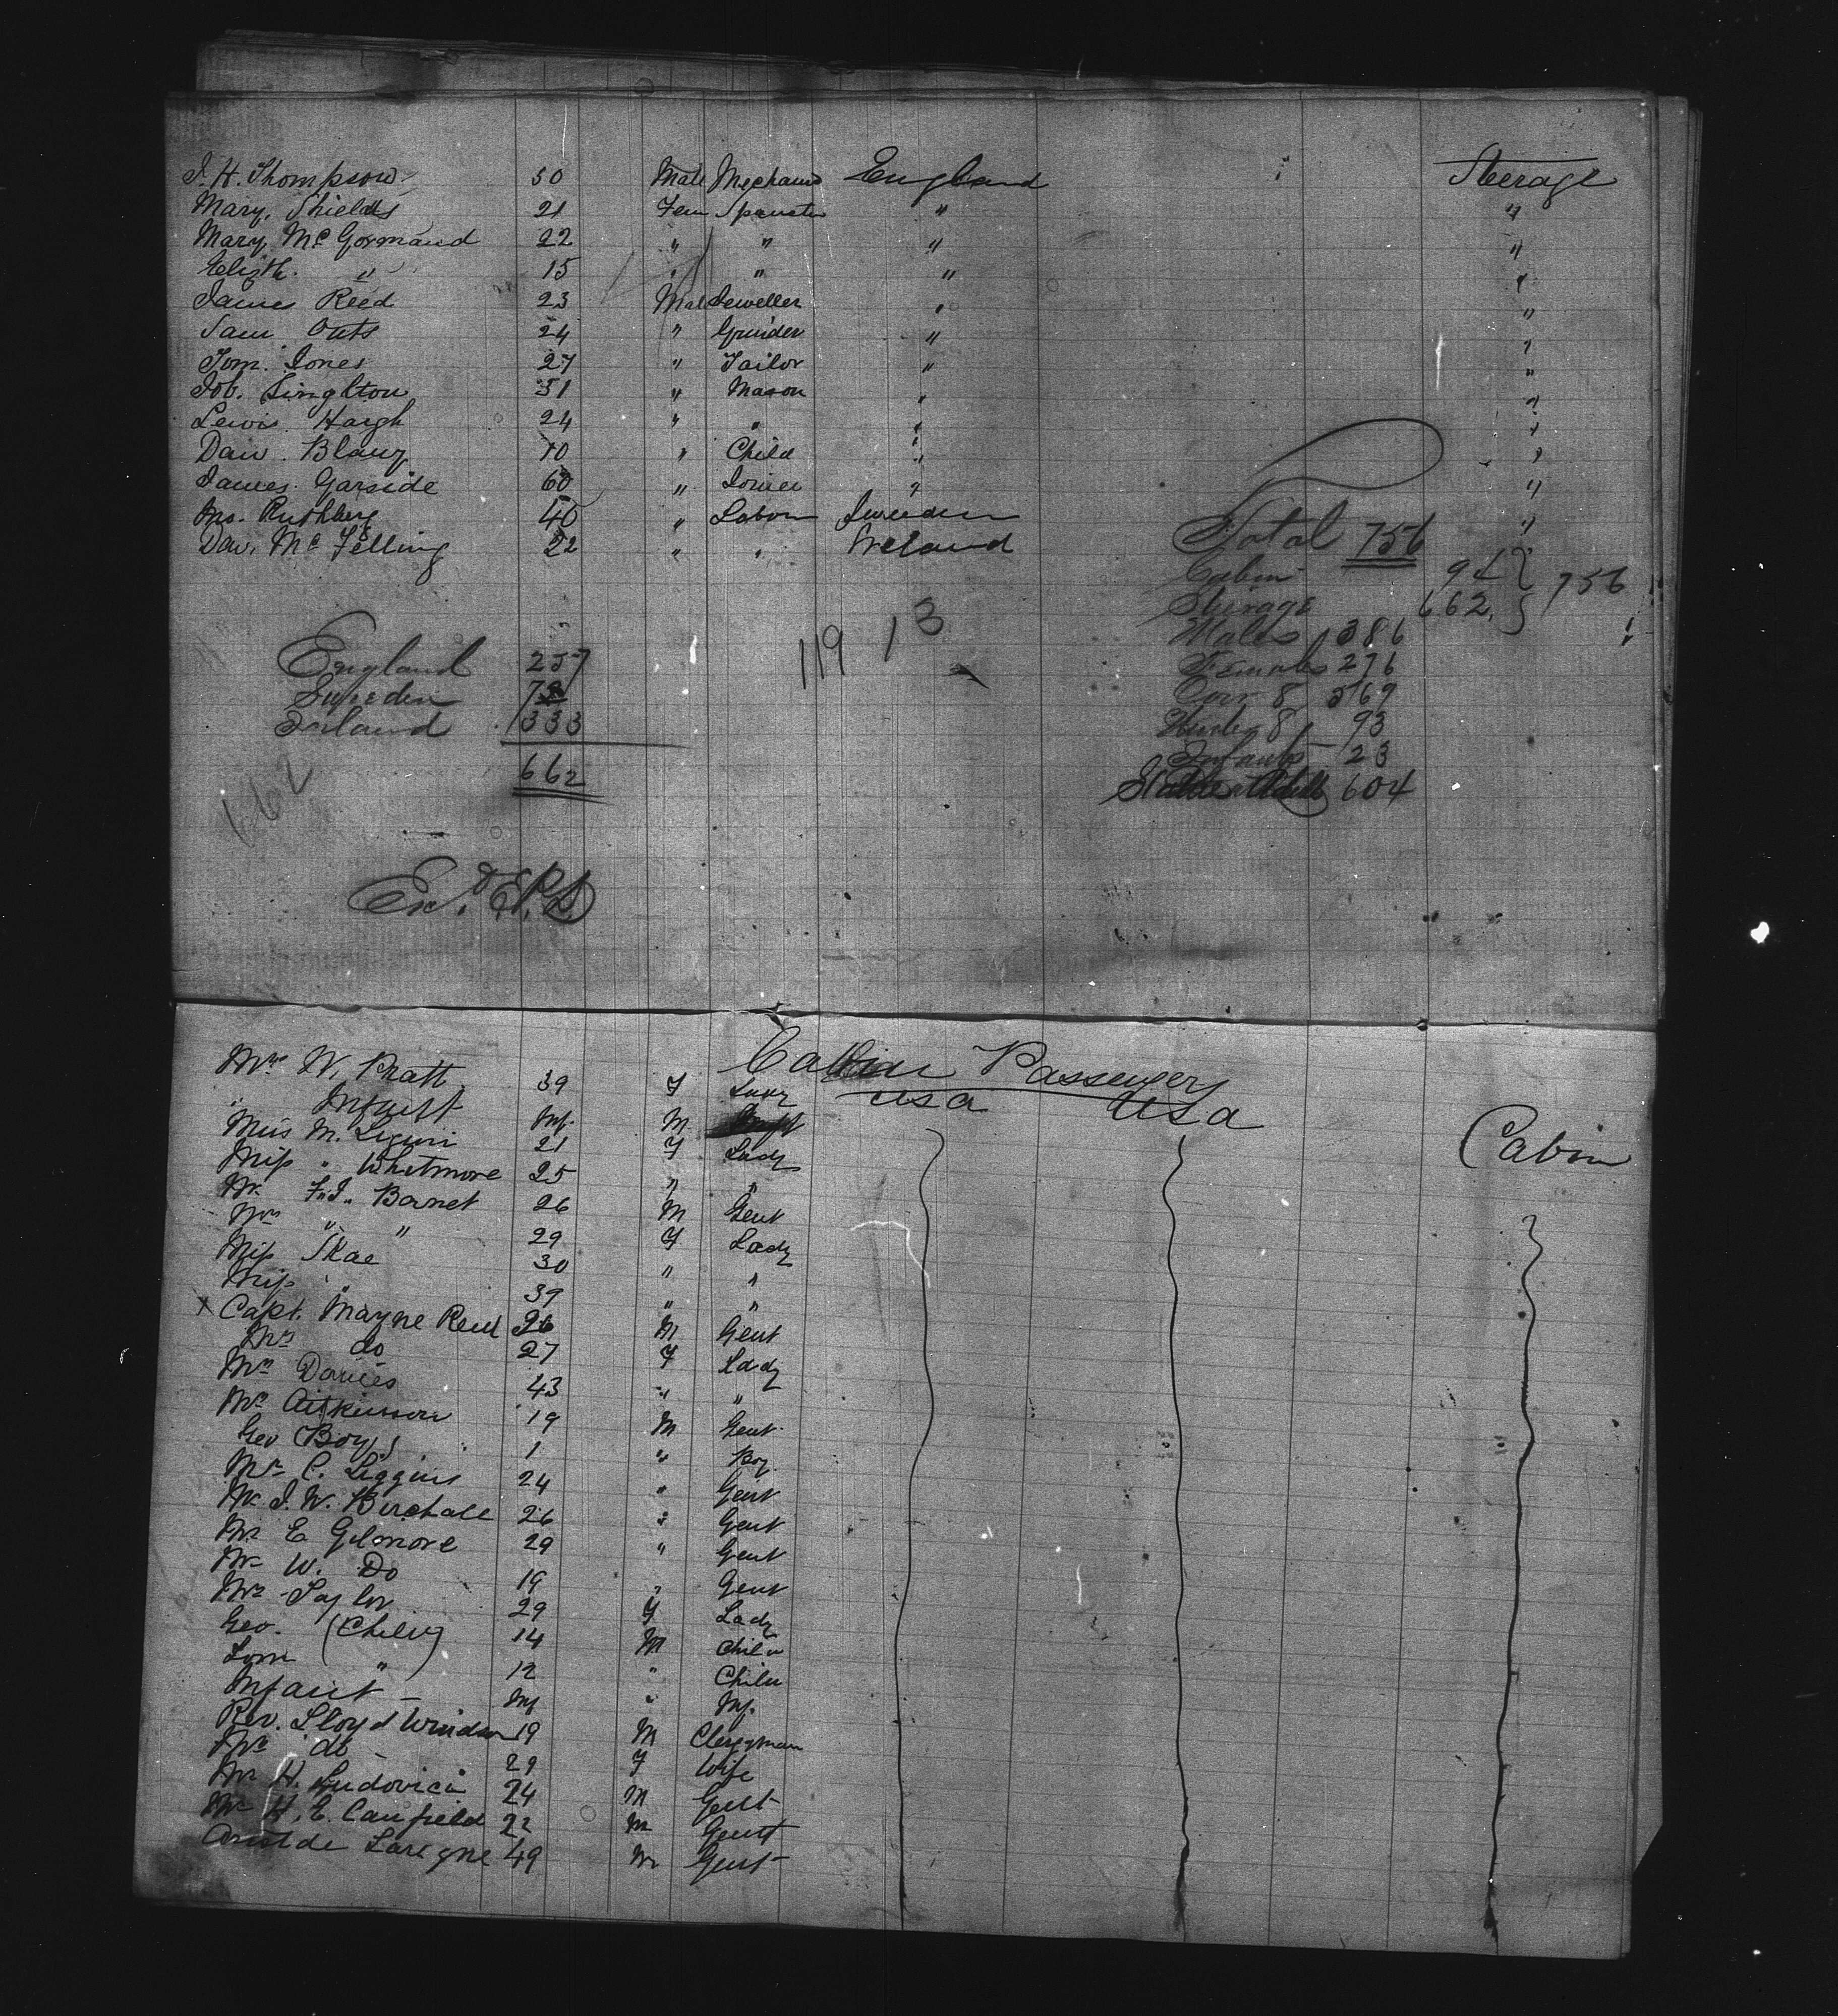 J. H. Thompson 50 Male Mechanic England Steerage
Mary Shields 21 Fem Spinster " "
Mary Mc Gormand 22 " " " "
Elizth. " 15 " " " "
James Reed 23 Male Jeweller " "
Sam Outs 24 " Grinder " "
Tom. Jones 27 " Tailor " "
Job. Singlton 31 " Mason " "
Lewis Haigh 24 " " " "
Dan. Blany 10 " Child " "
James. Garside 60 " Joiner " "
Jno. Ruthberg 40 " Labor Sweden "
Dav. Mc Felling 22 " " Ireland
Total 756
Cabin 94 } 756
Steerage 662
Males 386
Females 276
Over 8 569
Under 8 93
Infants 23
Statute Adults 604
119 13
England 257
Sweden 72
Ireland 333
662
662
Exd. E.P.L
Cabin Passengers
Mrs W. Pratt 39 F Lady USA USA Cabin
" Infant Inf. M
Miss M. Liguri 21 F Lady
Miss " Whitmore 25 " "
Mr F. J. Barnet 26 M Gent
Mrs " " 29 F Lady
Miss Skae 30 " "
Miss " 39 " "
x Capt. Mayne Reid 36 M Gent
Mrs do 27 F Lady
Mrs Davies 43 " "
Mr Aitkinson 19 M Gent.
Geo Boys 1 " Boy
Mr C. Liggins 24 " Gent
Mr J. W. Birchall 26 " Gent
Mr E Gilmore 29 " Gent
Mr W. Do 19 " Gent
Mrs Taylor 29 F Lady
Geo. (Child) 14 M Child
Tom " 12 " Child
Infant Inf " Inf.
Rev. Lloyd Windsor 19 M Clergyman
Mrs do 29 F Wife
Mr H. Ludovici 24 M Gent
Mr H. E. Caufield 22 M Gent
Aristide Lavigne 49 M Gent